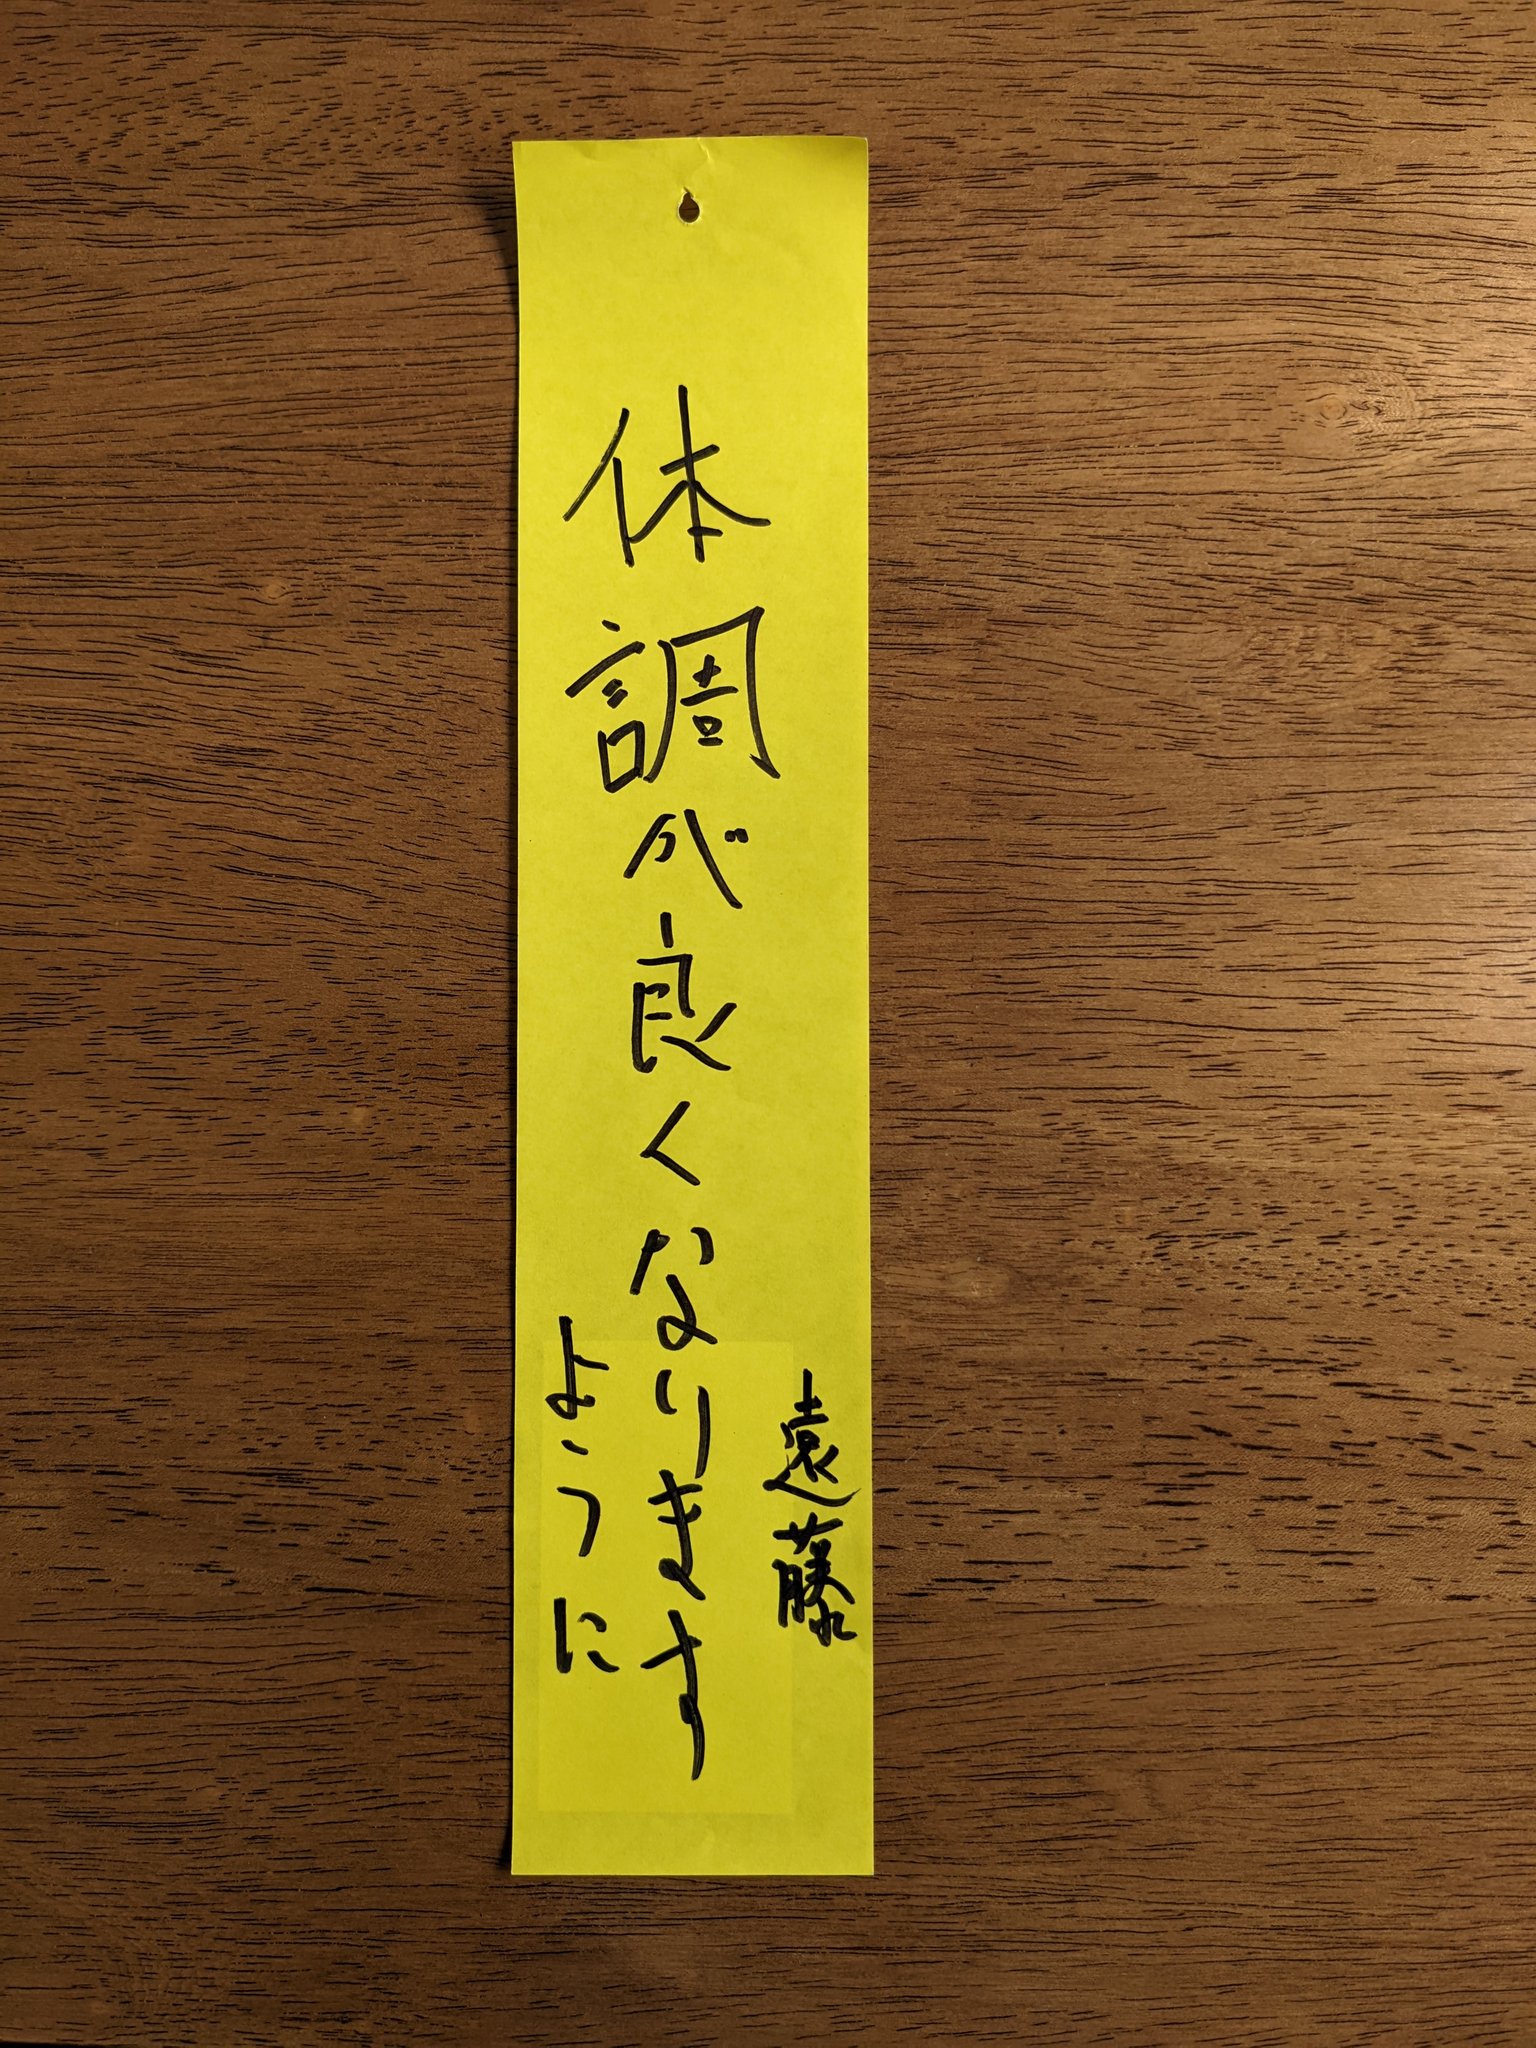 遠藤
体調が良くなります
ように